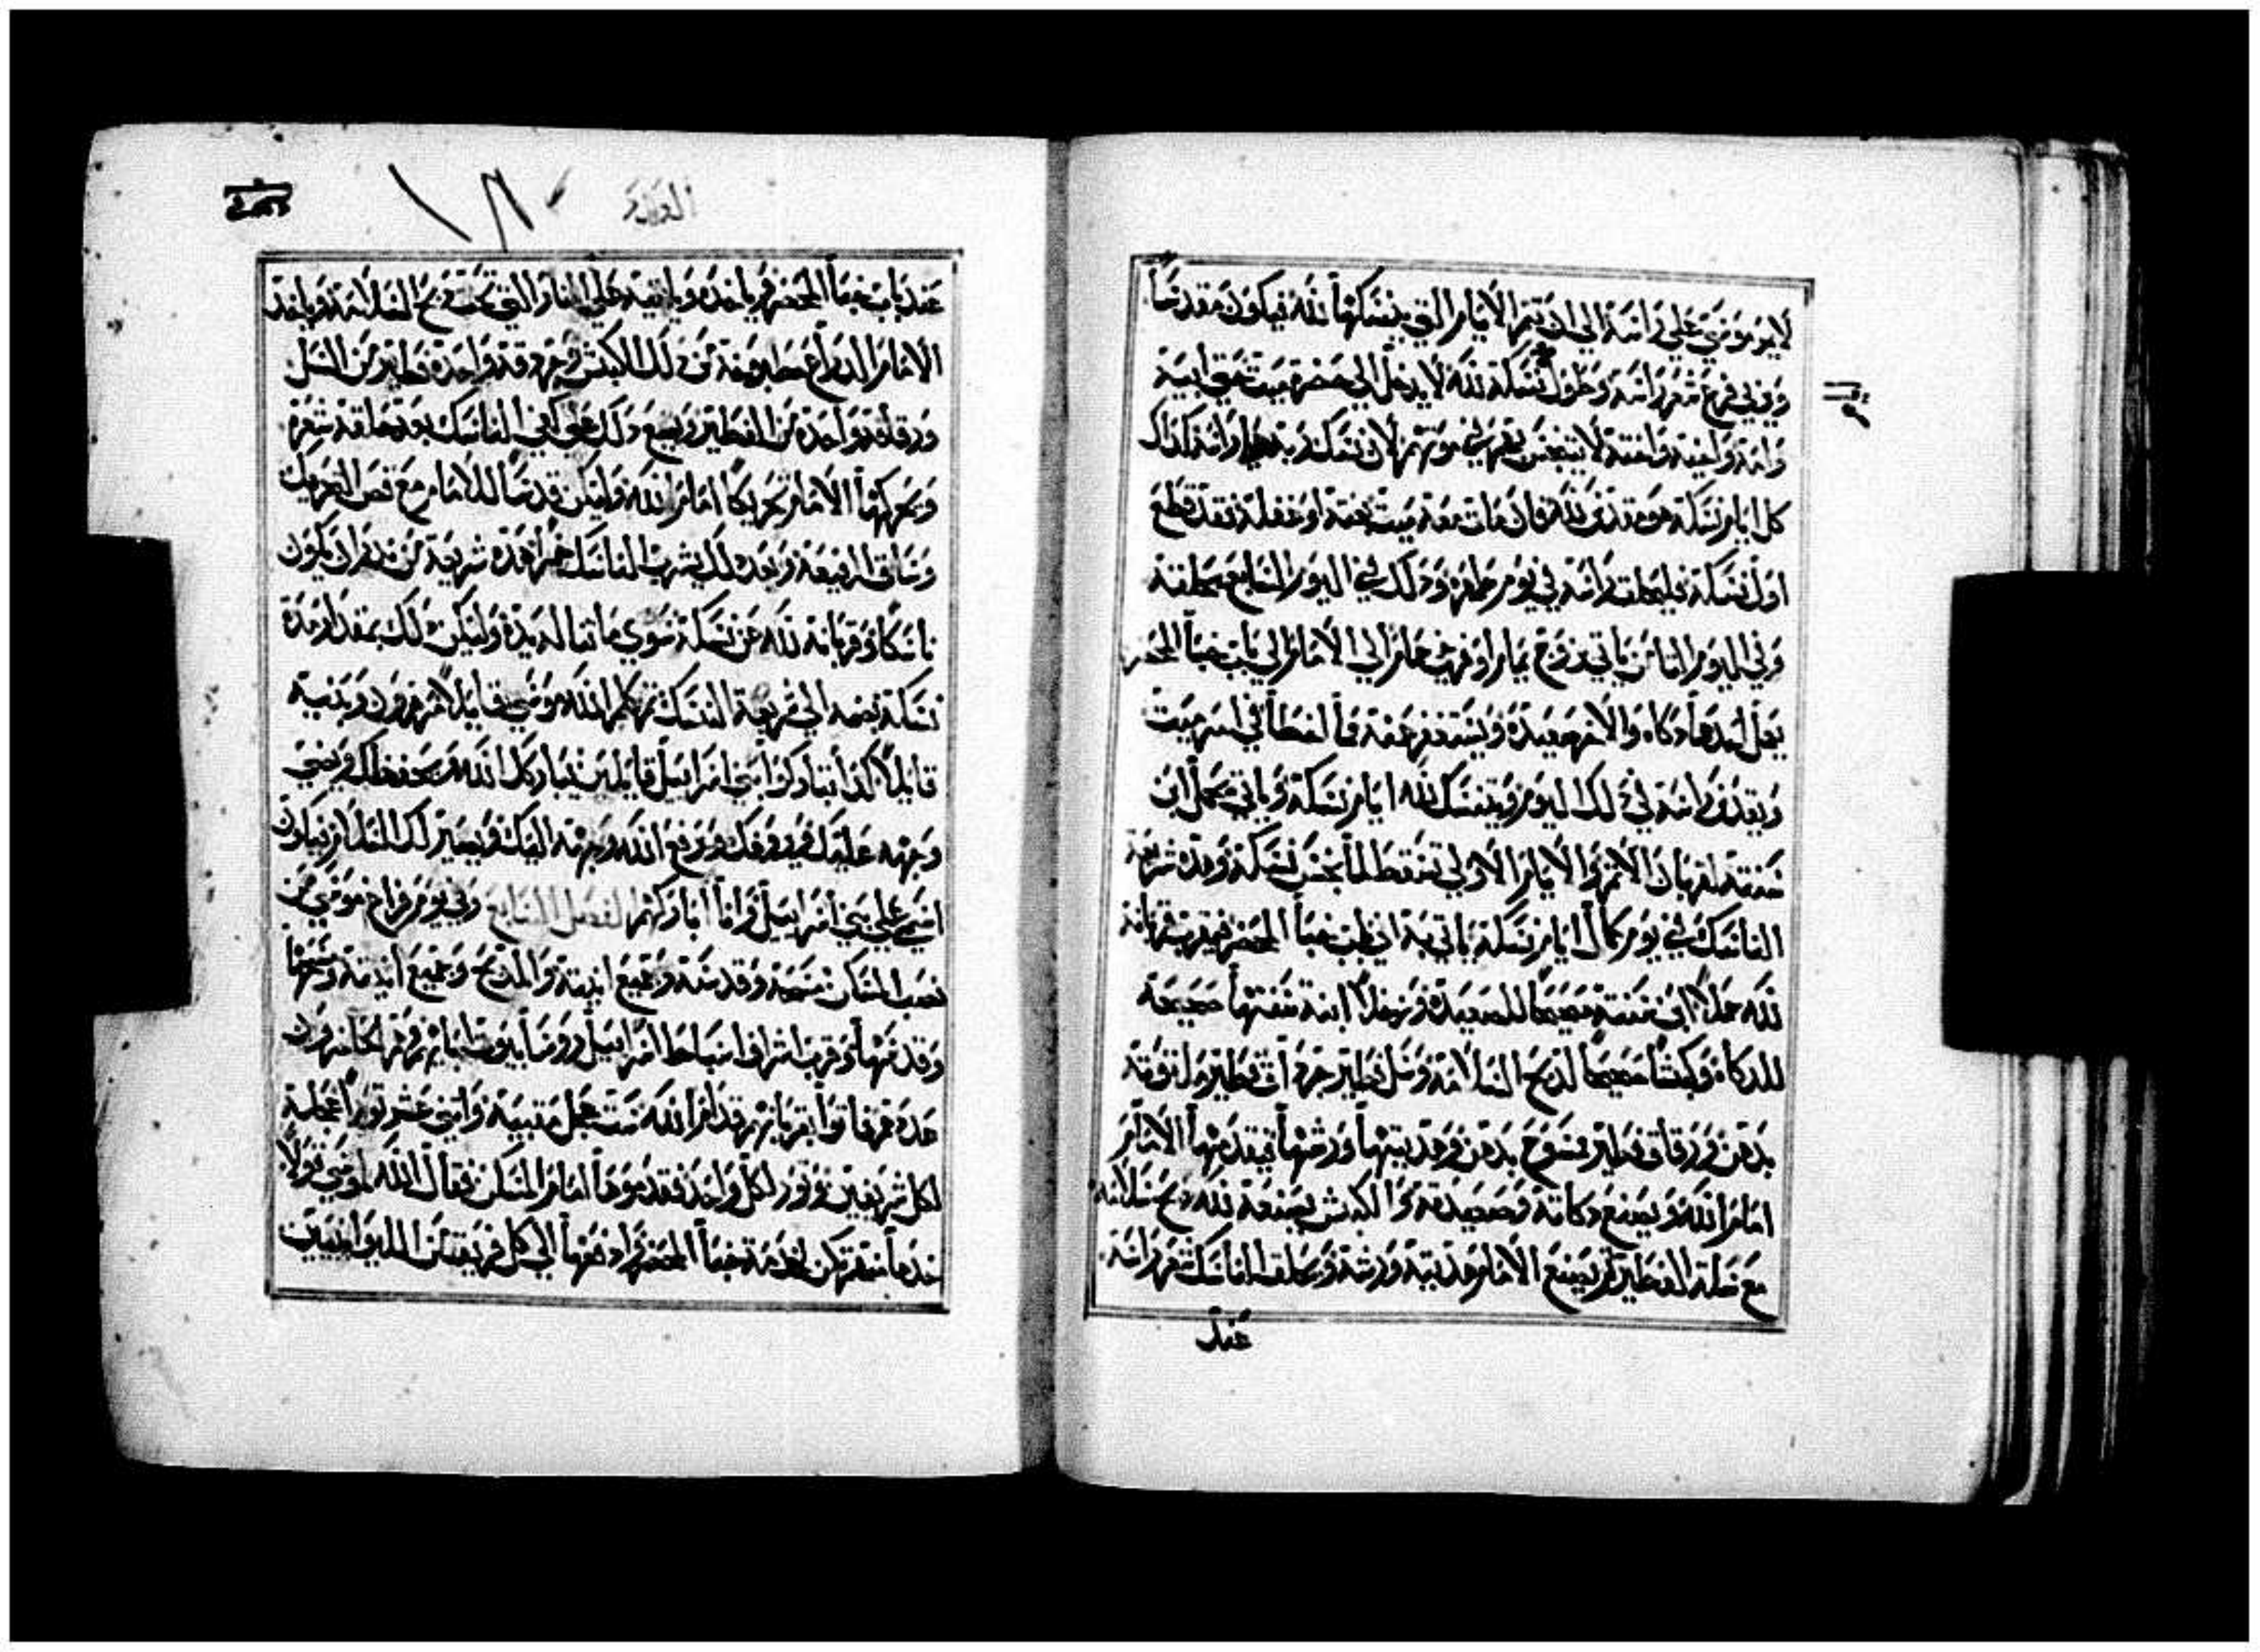 لا يمر موسي علي راسه الي ان تتم الايام التي ينسكها لله فيكون مقدسا
ويربي فرع شعر راسه وطول نسكه لله لا يدخل الي حضرة ميت حتي ابيه
وامه واخيه واخته لا يتنجس بهم في موتهم لان نسك ربه علي راسه كذلك
كل ايام نسكه هو مقدس لله فان مات معه ميت بغتة او غفلة فقد قطع
اول نسكه فليحلق راسه في يوم طهره وذلك في اليوم السابع يحلقه
وفي اليوم الثامن ياتي بزوج يمام او فرخي حمام الي الامام الي باب خبأ المحضر
يجعل احدهما ذكاه والاخر صعيدة ويستغفر عنه ما اخطا في امر ميت
ويقدس راسه في ذلك اليوم ويتنسك لله ايام نسكه وياتي بحمل ابن
سنته لقربان الاثم والايام الاولي تسقط لما نجس نسكه وهذه شريعة
الناسك في يوم كمال ايام نسكه ياتي به الي باب خبأ المحضر فيقرب قربانه
لله حملا ابن سنته صحيحا للصعيدة ورخلا ابنة سنتها صحيحة
للذكاه وكبشا صحيحا لذبح السلامة وسل فطير جرادق فطير ملتوتة
بدهن ورقاق فطير ممسوح بدهن وهديتها ورشها فيقدمها الامام
امام الله ويصنع ذكاته وصعيدته والكبش يصنعه لله ذبح سلامة
مع سلة الفطير ثم يصنع الامام هديته ورشه ويحلق الناسك شعر راسه
عند
العدد
١٨٠
عند باب خبأ المحضر وياخذه ويلقيه علي النار التي تحت ذبح السلامة وياخذ
الامام الذراع مطبوخة من ذلك الكبش وجردقة واحدة فطير من السل
ورقاقة واحدة من الفطير ويضع ذلك علي كفي الناسك بعد حلقه شعره
ويحركها الامام تحريكا امام الله وليكن قدسا للامام مع قص التحريك
وساق الرفيعة وبعد ذلك يشرب الناسك خمرا هذه شريعة من نذر ان يكون
ناسكا وقربانه لله عن نسكه سوي ما تنا له يده وليكن ذلك بمقدار مدة
نسكه بضمه الي شريعة النسك ثم كلم الله موسي قايلا مر هرون وبنيه
قايلا كذا تباركوا بني اسراييل قايلين يباركك الله ويحفظك ويضي
وجهه عليك ويروفك ويرفع الله وجهه اليك ويصير لك السلام فيتلون
اسمي علي بني اسراييل وانا اباركهم الفصل السابع وفي يوم فراغ موسي من
نصب المسكن مسحه وقدسه وجميع انيته والمذبح وجميع انيته ومسحها
وقدسها وقرب اشراف اسباط اسراييل رؤسا بيوت ابايهم وهم الحاضرون
عدة فرفاقوا بقربانهم قدام الله ست عجل مقببة واثني عشر ثورا عجلة
لكل شريفين وثور لكل واحد فقدموها امام المسكن فقال الله لموسي قولا
خذها منهم تكن لخدمة خبأ المحضر وادفعها الي كل فريق من الليوانيين